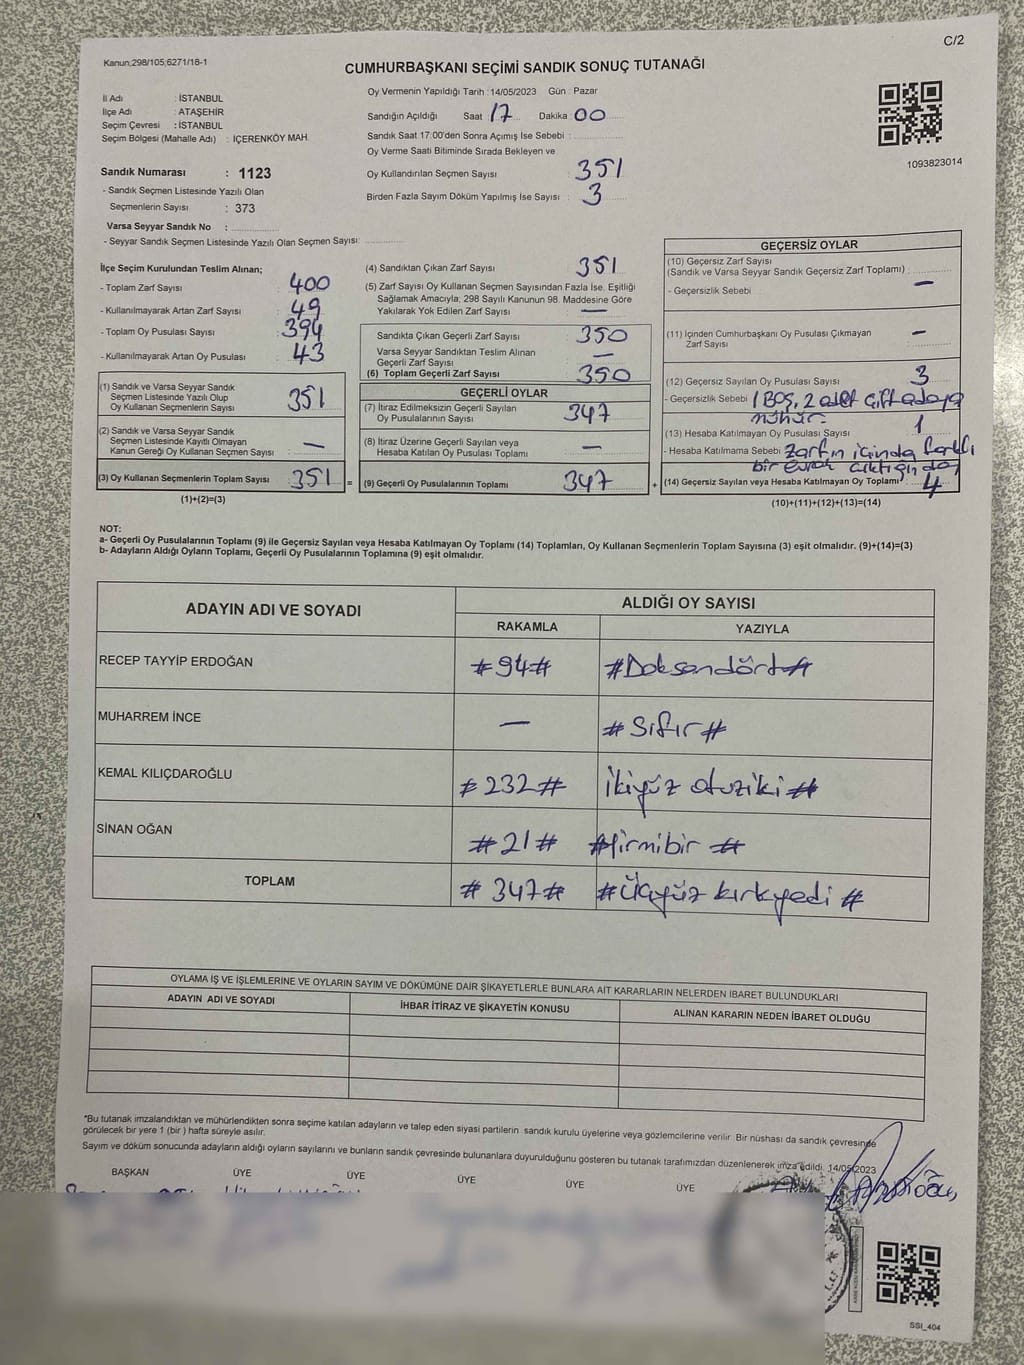 C/2
Kanun:298/105;6271/18-1
CUMHURBAŞKANI SEÇİMİ SANDIK SONUÇ TUTANAĞI
İl Adı : İSTANBUL
İlçe Adı : ATAŞEHİR
Seçim Çevresi : İSTANBUL
Seçim Bölgesi (Mahalle Adı) : İÇERENKÖY MAH.
Sandık Numarası : 1123
- Sandık Seçmen Listesinde Yazılı Olan
Seçmenlerin Sayısı : 373
Varsa Seyyar Sandık No :
- Seyyar Sandık Seçmen Listesinde Yazılı Olan Seçmen Sayısı:
Oy Vermenin Yapıldığı Tarih : 14/05/2023 Gün : Pazar
Sandığın Açıldığı Saat 17 Dakika 00
Sandık Saat 17:00'den Sonra Açımış İse Sebebi :
Oy Verme Saati Bitiminde Sırada Bekleyen ve
Oy Kullandırılan Seçmen Sayısı : 351
Birden Fazla Sayım Döküm Yapılmış İse Sayısı : 3
1093823014
İlçe Seçim Kurulundan Teslim Alınan;
- Toplam Zarf Sayısı : 400
- Kullanılmayarak Artan Zarf Sayısı : 49
- Toplam Oy Pusulası Sayısı : 394
- Kullanılmayarak Artan Oy Pusulası : 43
(1) Sandık ve Varsa Seyyar Sandık
Seçmen Listesinde Yazılı Olup
Oy Kullanan Seçmenlerin Sayısı : 351
(2) Sandık ve Varsa Seyyar Sandık
Seçmen Listesinde Kayıtlı Olmayan
Kanun Gereği Oy Kullanan Seçmen Sayısı : —
(3) Oy Kullanan Seçmenlerin Toplam Sayısı : 351 =
(1)+(2)=(3)
(4) Sandıktan Çıkan Zarf Sayısı : 351
(5) Zarf Sayısı Oy Kullanan Seçmen Sayısından Fazla İse, Eşitliği
Sağlamak Amacıyla; 298 Sayılı Kanunun 98. Maddesine Göre
Yakılarak Yok Edilen Zarf Sayısı : —
Sandıkta Çıkan Geçerli Zarf Sayısı : 350
Varsa Seyyar Sandıktan Teslim Alınan
Geçerli Zarf Sayısı : —
(6) Toplam Geçerli Zarf Sayısı : 350
GEÇERLİ OYLAR
(7) İtiraz Edilmeksizin Geçerli Sayılan
Oy Pusulalarının Sayısı : 347
(8) İtiraz Üzerine Geçerli Sayılan veya
Hesaba Katılan Oy Pusulası Toplamı : —
(9) Geçerli Oy Pusulalarının Toplamı : 347 +
GEÇERSİZ OYLAR
(10) Geçersiz Zarf Sayısı
(Sandık ve Varsa Seyyar Sandık Geçersiz Zarf Toplamı) :
- Geçersizlik Sebebi : —
(11) İçinden Cumhurbaşkanı Oy Pusulası Çıkmayan
Zarf Sayısı : —
(12) Geçersiz Sayılan Oy Pusulası Sayısı : 3
- Geçersizlik Sebebi 1 BOŞ, 2 adet çift adaya
mühür.
(13) Hesaba Katılmayan Oy Pusulası Sayısı : 1
- Hesaba Katılmama Sebebi zarfın içinde farklı
bir evrak çıktığında,
(14) Geçersiz Sayılan veya Hesaba Katılmayan Oy Toplamı : 4
(10)+(11)+(12)+(13)=(14)
NOT:
a- Geçerli Oy Pusulalarının Toplamı (9) ile Geçersiz Sayılan veya Hesaba Katılmayan Oy Toplamı (14) Toplamları, Oy Kullanan Seçmenlerin Toplam Sayısına (3) eşit olmalıdır. (9)+(14)=(3)
b- Adayların Aldığı Oyların Toplamı, Geçerli Oy Pusulalarının Toplamına (9) eşit olmalıdır.
ADAYIN ADI VE SOYADI ALDIĞI OY SAYISI
RAKAMLA YAZIYLA
RECEP TAYYİP ERDOĞAN #94# #Doksandört#
MUHARREM İNCE — #Sıfır#
KEMAL KILIÇDAROĞLU #232# ikiyüz otuziki#
SİNAN OĞAN #21# #Yirmibir#
TOPLAM #347# #Üçyüz kırkyedi#
OYLAMA İŞ VE İŞLEMLERİNE VE OYLARIN SAYIM VE DÖKÜMÜNE DAİR ŞİKAYETLERLE BUNLARA AİT KARARLARIN NELERDEN İBARET BULUNDUKLARI
ADAYIN ADI VE SOYADI İHBAR İTİRAZ VE ŞİKAYETİN KONUSU ALINAN KARARIN NEDEN İBARET OLDUĞU
*Bu tutanak imzalandıktan ve mühürlendikten sonra seçime katılan adayların ve talep eden siyasi partilerin sandık kurulu üyelerine veya gözlemcilerine verilir. Bir nüshası da sandık çevresinde
görülecek bir yere 1 (bir) hafta süreyle asılır.
Sayım ve döküm sonucunda adayların aldığı oyların sayılarını ve bunların sandık çevresinde bulunanlara duyurulduğunu gösteren bu tutanak tarafımızdan düzenlenerek imza edildi. 14/05/2023
BAŞKAN ÜYE ÜYE ÜYE ÜYE ÜYE
SSI_404